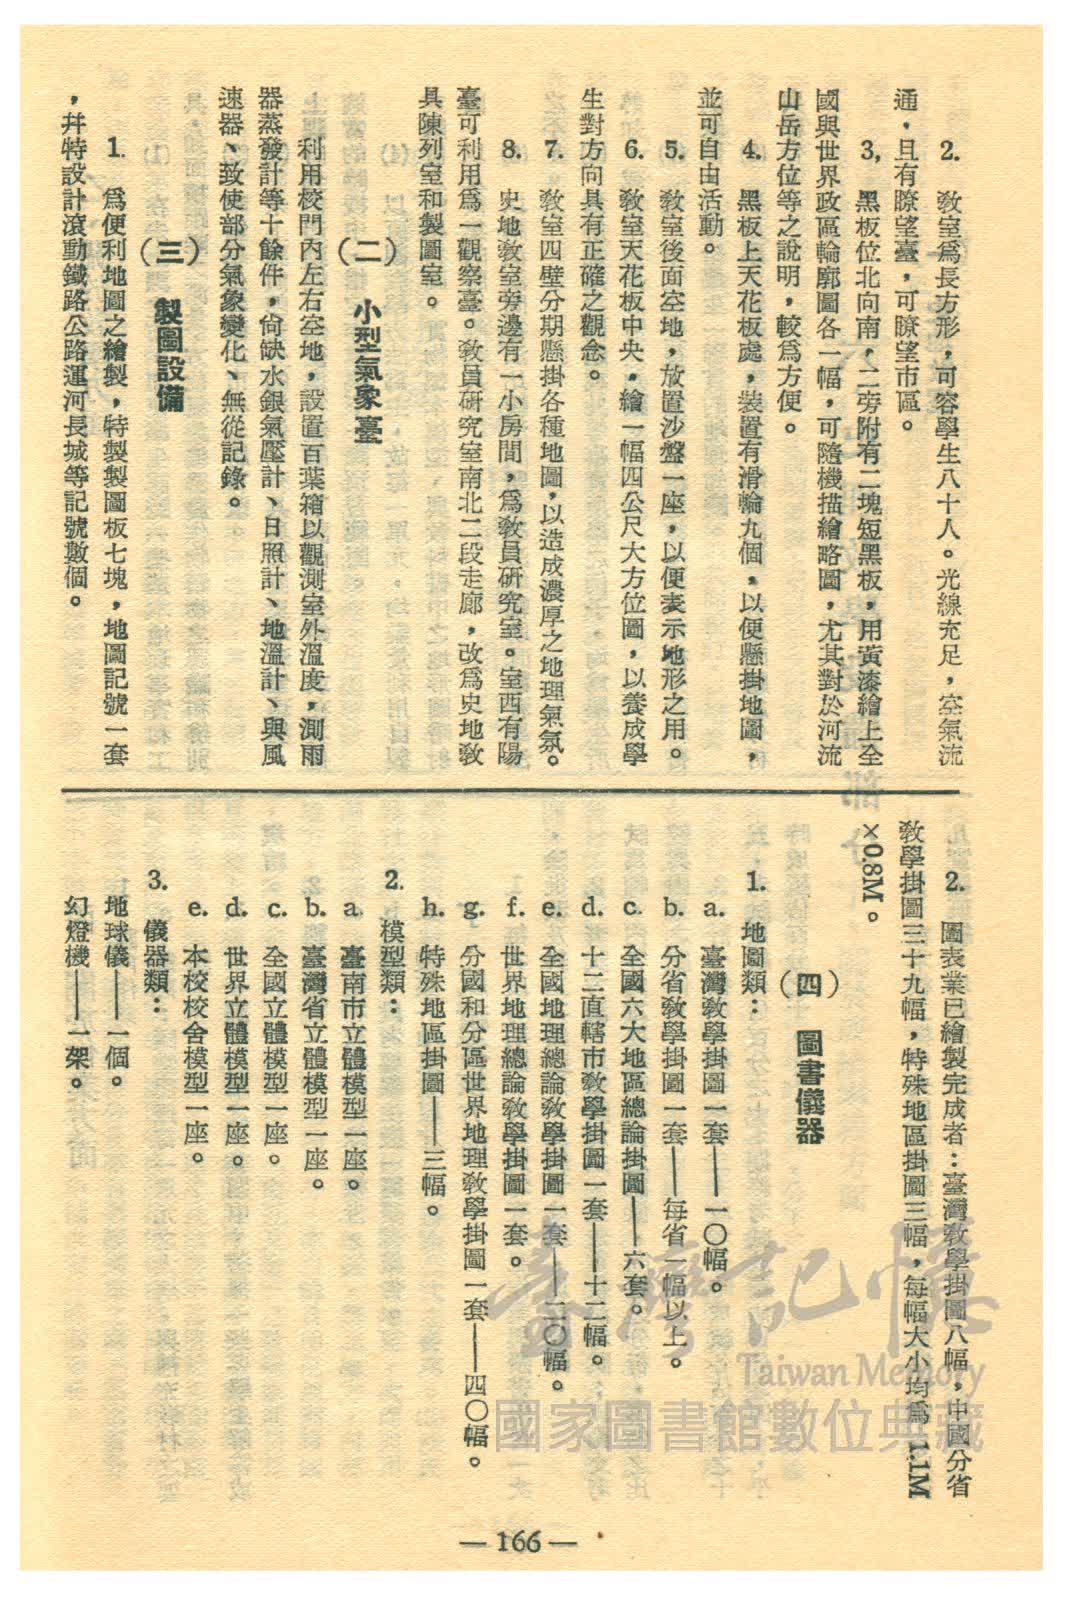 2. 敎室爲長方形，可容學生八十人。光線充足，空氣流
通，且有瞭望臺，可瞭望市區。
3, 黑板位北向南，二旁附有二塊短黑板，用黃漆繪上全
國與世界政區輪廓圖各一幅，可隨機描繪略圖，尤其對於河流
山岳方位等之說明，較爲方便。
4. 黑板上天花板處，裝置有滑輪九個，以便懸掛地圖，
並可自由活動。
5. 敎室後面空地，放置沙盤一座，以便表示地形之用。
6. 敎室天花板中央，繪一幅四公尺大方位圖，以養成學
生對方向具有正確之觀念。
7. 敎室四壁分期懸掛各種地圖，以造成濃厚之地理氣氛。
8. 史地敎室旁邊有一小房間，爲敎員研究室。室西有陽
臺可利用爲一觀察臺。敎員研究室南北二段走廊，改爲史地敎
具陳列室和製圖室。
(二) 小型氣象臺
利用校門內左右空地，設置百葉箱以觀測室外溫度，測雨
器蒸發計等十餘件，尙缺水銀氣壓計、日照計、地溫計、與風
速器、致使部分氣象變化、無從記錄。
(三) 製圖設備
1. 爲便利地圖之繪製，特製製圖板七塊，地圖記號一套
，幷特設計滾動鐵路公路運河長城等記號數個。
2. 圖表業已繪製完成者：臺灣敎學掛圖八幅，中國分省
敎學掛圖三十九幅，特殊地區掛圖三幅，每幅大小均爲 1.1M
×0.8M。
(四) 圖書儀器
1. 地圖類：
a. 臺灣敎學掛圖一套——一〇幅。
b. 分省敎學掛圖一套——每省一幅以上。
c. 全國六大地區總論掛圖——六套。
d. 十二直轄市敎學掛圖一套——十二幅。
e. 全國地理總論敎學掛圖一套——二〇幅。
f. 世界地理總論敎學掛圖一套。
g. 分國和分區世界地理敎學掛圖一套——四〇幅。
h. 特殊地區掛圖——三幅。
2. 模型類：
a. 臺南市立體模型一座。
b. 臺灣省立體模型一座。
c. 全國立體模型一座。
d. 世界立體模型一座。
e. 本校校舍模型一座。
3. 儀器類：
地球儀——一個。
幻燈機——一架。
— 166 —
臺灣記憶
Taiwan Memory
國家圖書館數位典藏